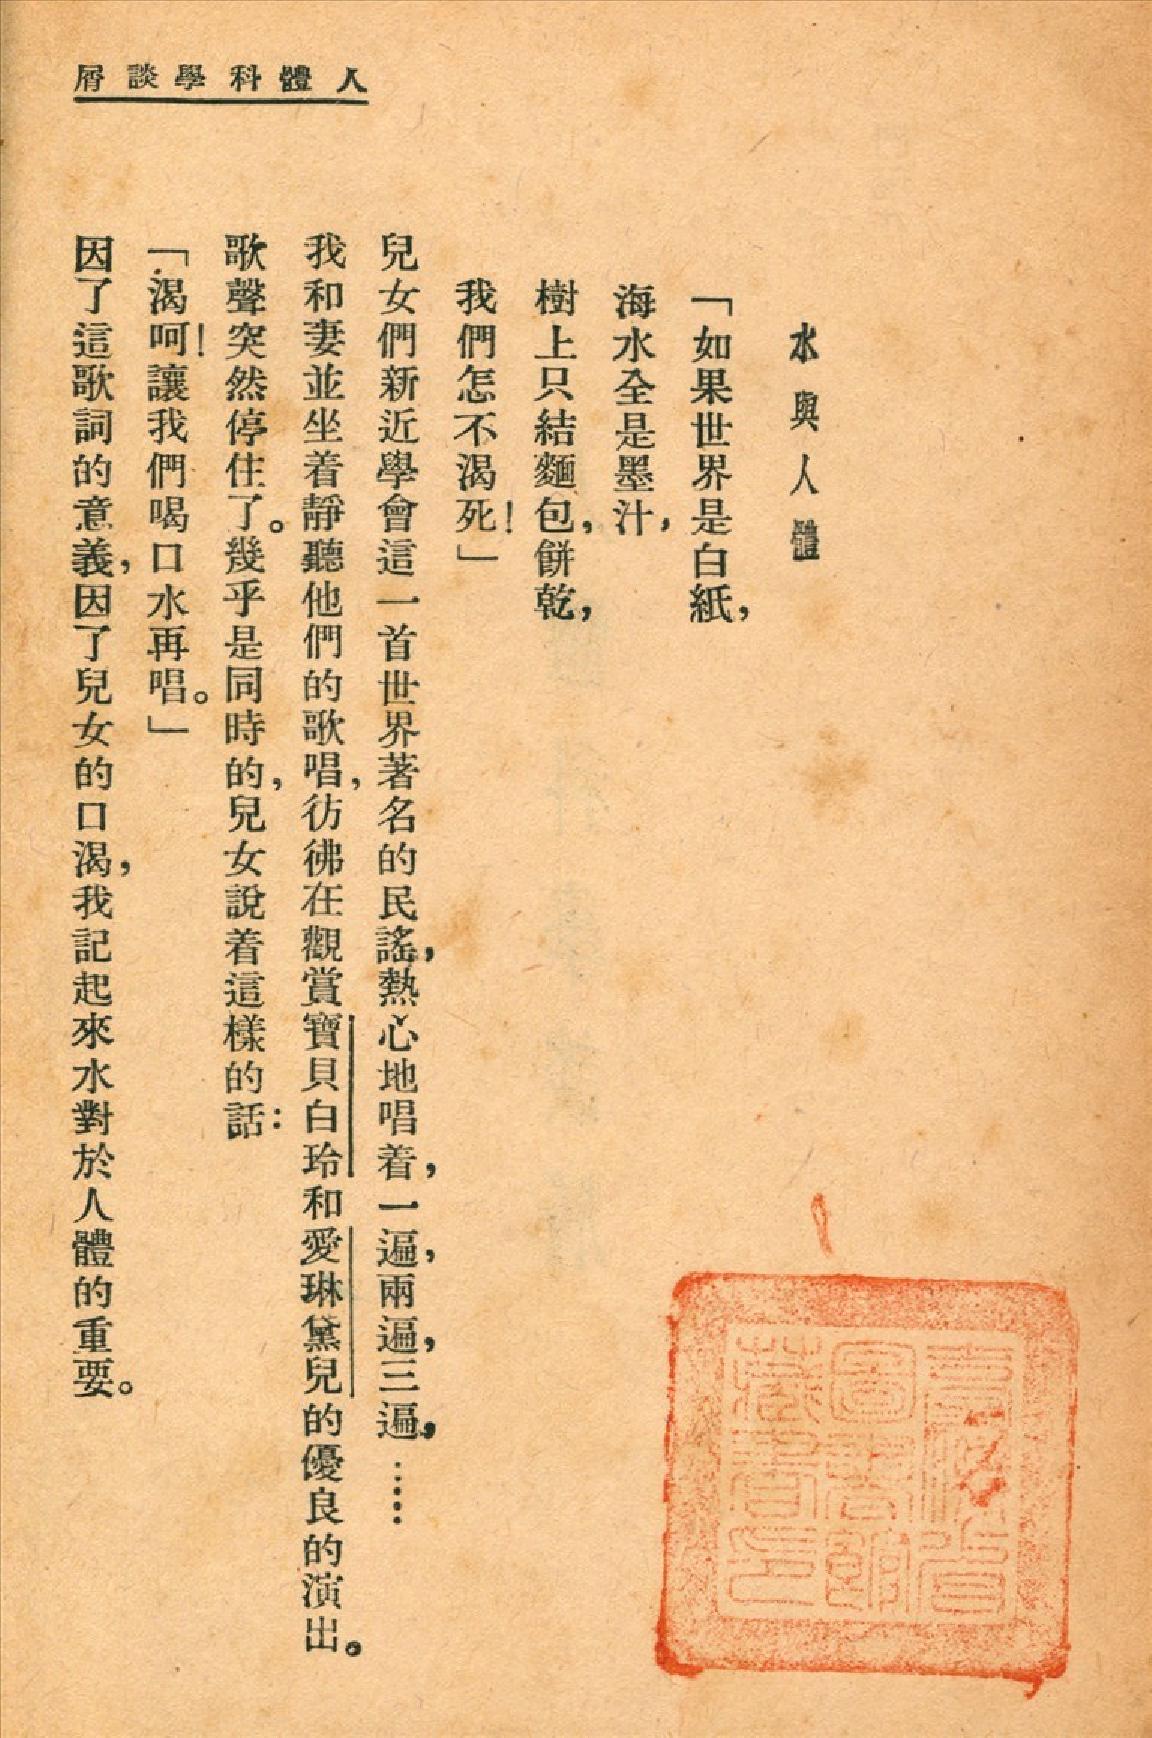 人體科學談屑
水與人體
「如果世界是白紙，
海水全是墨汁，
樹上只結麵包，餅乾，
我們怎不渴死！」
兒女們新近學會這一首世界著名的民謠，熱心地唱着，一遍，兩遍，三遍，……
我和妻並坐着靜聽他們的歌唱，彷彿在觀賞寶貝白玲和愛琳黛兒的優良的演出。
歌聲突然停住了。幾乎是同時的，兒女說着這樣的話：
「渴呵！讓我們喝口水再唱。」
因了這歌詞的意義，因了兒女的口渴，我記起來水對於人體的重要。
臺灣省
圖書館
藏書印